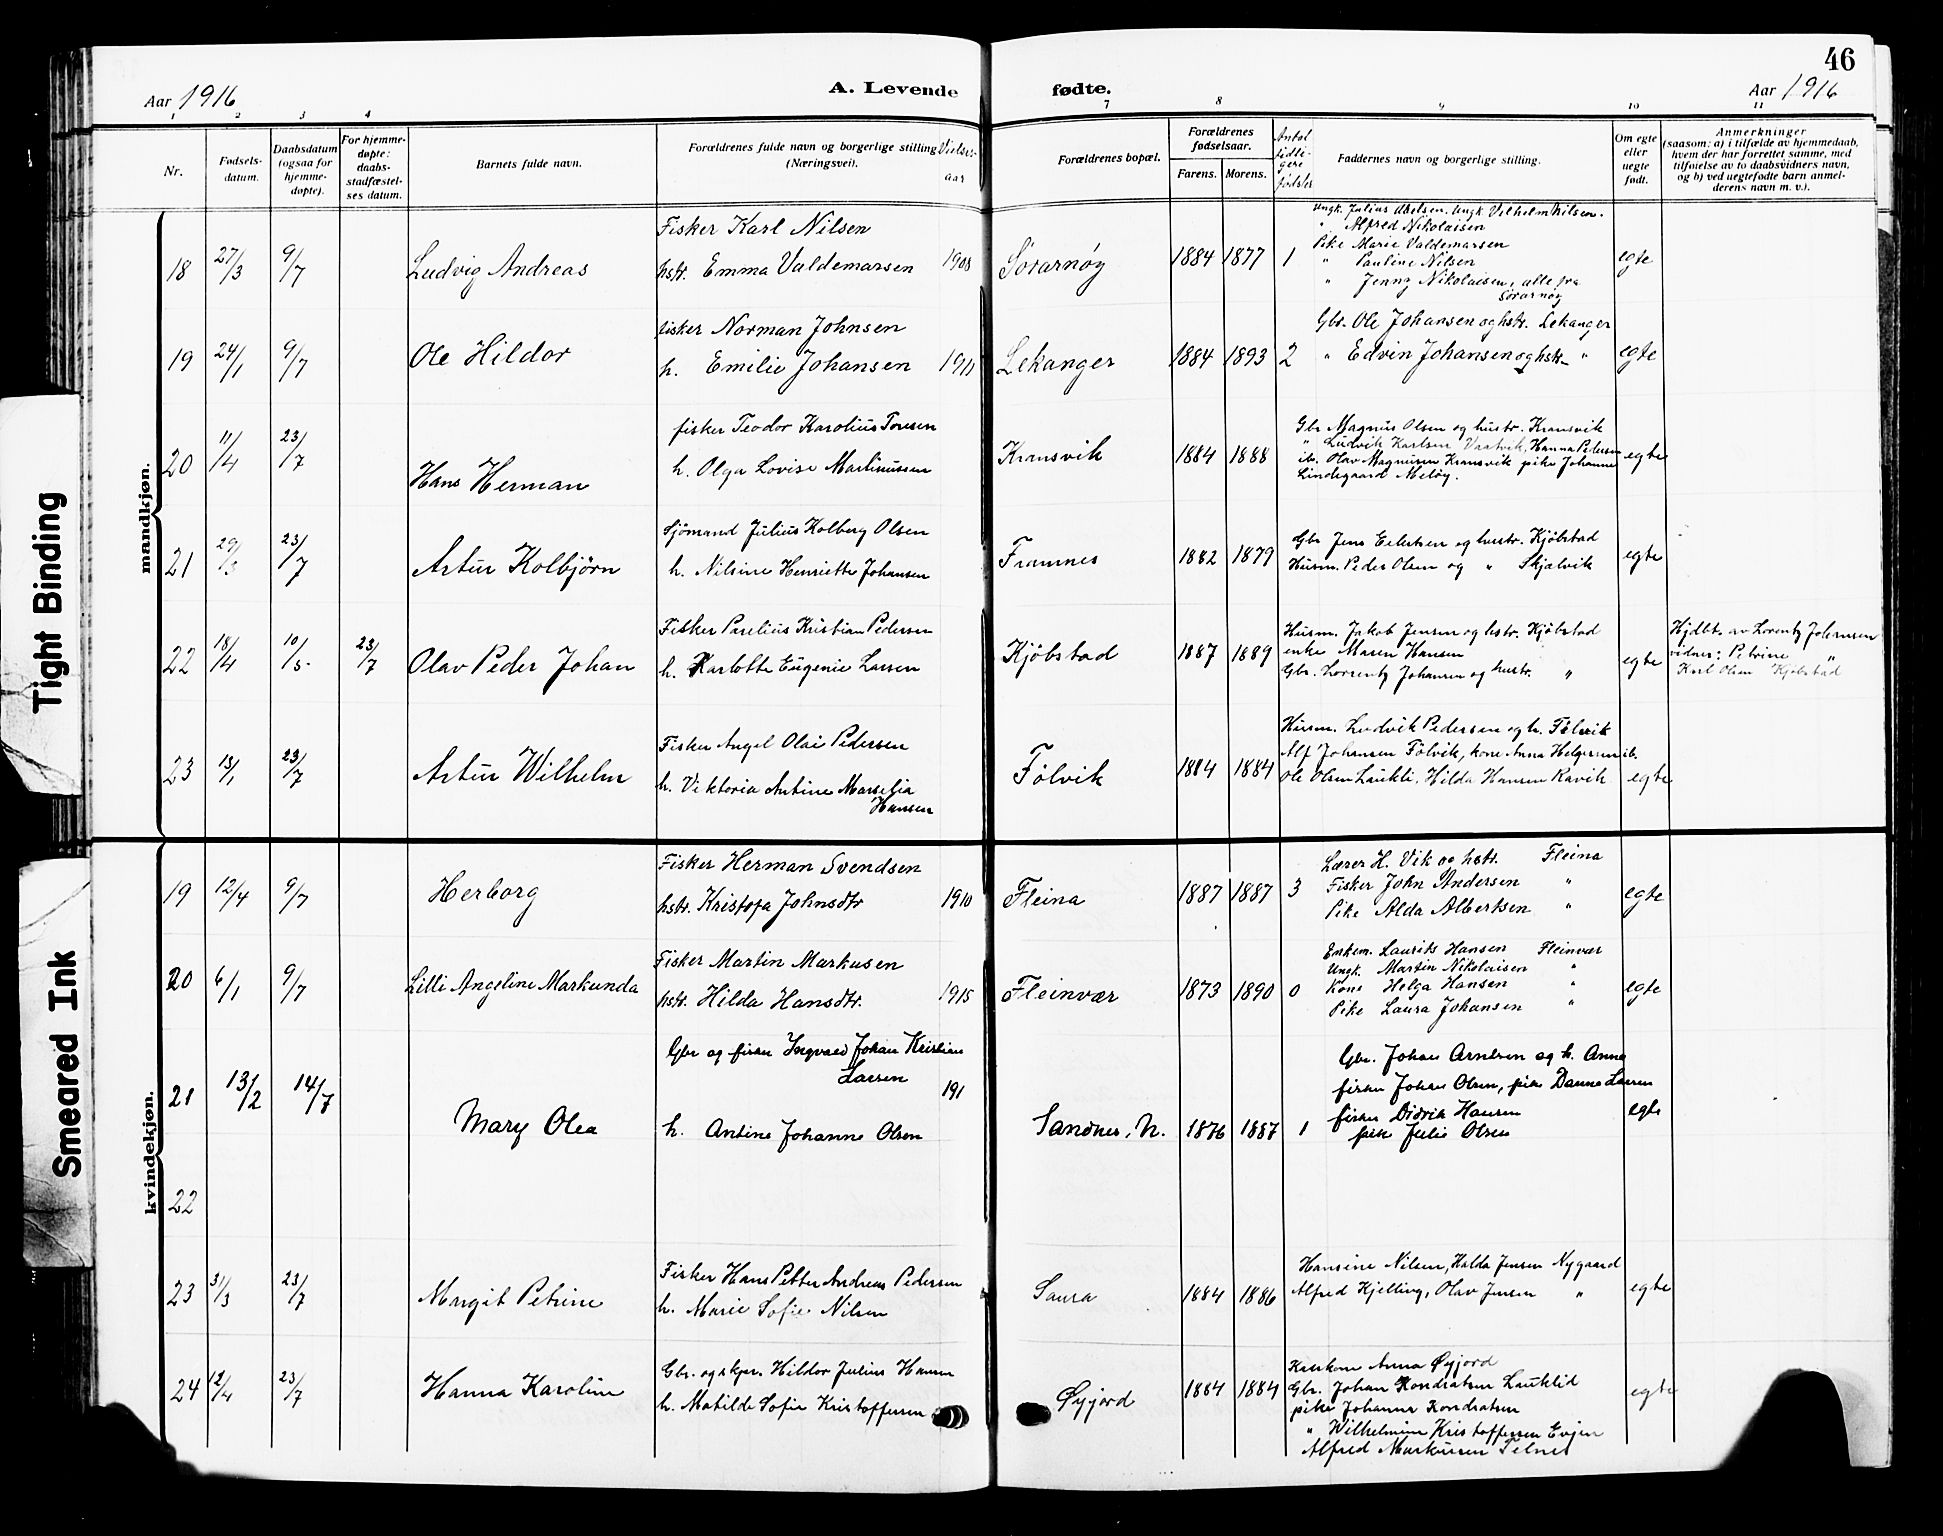 46
Aar 1916 A. Levende fødte. Aar 1916
1 2 3 4 7 8 9 10 11
Nr.
Fødsels-
datum.
Daabsdatum
(ogsaa for
hjemme-
døpte).
For hjemme-
døpte:
daabs-
stadfæstel-
ses datum.
Barnets fulde navn.
Forældrenes fulde navn og borgerlige stilling
(Næringsvei).
Vielses-
aar
Forældrenes bopæl.
Forældrenes
fødselsaar.
Farens. Morens.
Antal
tidli-
gere
fødsler
Faddernes navn og borgerlige stilling.
Om egte
eller
uegte
født.
Anmerkninger
(saasom: a) i tilfælde av hjemmedaab,
hvem der har forrettet samme, med
tilføielse av to daabsvidners navn,
og b) ved uegtefødte barn anmel-
derens navn m. v.).
mandkjøn.
18 27/3 9/7 Ludvig Andreas
Fisker Karl Nilsen
hstr. Emma Valdemarsen 1908
Sørarnøy 1884 1877 1
Ungk. Julius Abelsen. Ungk Vilhelm Nilsen.
" Alfred Nikolaisen
Pike Marie Valdemarsen
" Pauline Nilsen
" Jenny Nikolaisen, alle fra
Sørarnøy
egte
19 24/1 9/7 Ole Hildor
fisker Norman Johnsen
h. Emilie Johansen 1911
Lekanger 1884 1893 2
Gbr. Ole Johansen og hstr. Lekanger
" Edvin Johansen og hstr. "
egte
20 11/4 23/7 Hans Herman
fisker Teodor Karolius Tonesen
h. Olga Lovise Martinussen
Kransvik 1884 1888
Gbr Magnus Olsen og hustr. Kransvik
" Ludvik Karlsen Vaatvik, Hanna Pedersen
ib. Olav Magnusen Kransvik pike Johanne
Lindegaard Meløy.
egte
21 29/3 23/7 Artur Kolbjørn
Sjømand Julius Kolberg Olsen
h. Nilsine Henriette Johansen
Framnes 1882 1879
Gbr Jens Eilertsen og hustr. Kjøbstad
Husm. Peder Olsen og " Skjelvik
egte
22 18/4 10/5 23/7 Olav Peder Johan
Fisker Parelius Kristian Pedersen
h. Karlotte Eugenie Larsen
Kjøbstad 1887 1889
Husm. Jakob Jensen og hstr. Kjøbstad
enke Maren Hansen
Gbr. Lorentz Johansen og hustr. "
egte
Hjdbt. av Lorentz Johansen
vidner: Petrine "
Karl Olsen Kjøbstad
23 13/1 23/7 Artur Wilhelm
Fisker Angel Olai Pedersen
h. Viktoria Antine Marselia
Hansen
Følvik 1884 1884
Husm. Ludvik Pedersen og h. Følvik
Alf Johansen Følvik, kone Anna Helgesen ib.
Ole Olsen Laukli, Hilda Hansen Ravik
egte
kvindekjøn.
19 12/4 9/7 Herborg
Fisker Herman Svendsen
hstr. Kristofa Johnsdtr 1910
Fleina 1887 1887 3
Lærer H. Vik og hstr. Fleina
Fisker John Andersen "
Pike Alda Albertsen "
egte
20 6/1 9/7 Lilli Angeline Markunda
Fisker Martin Markusen
hstr. Hilda Hansdtr. 1915
Fleinvær 1873 1890 0
Enkem. Laurits Hansen Fleinvær
Ungk. Martin Nikolaisen "
Kone Helga Hansen "
Pike Laura Johansen "
egte
21 13/2 14/7 Mary Olea
Gbr og fisker Ingvald Johan Kristian
Larsen 191
h. Antine Johanne Olsen
Sandnes, N. 1876 1887 1
Gbr. Johan Arntsen og h. Anna
fisker Johan Olsen, pike Danna Larsen
fisker Didrik Hansen
pike Julie Olsen
egte
22
23 31/3 23/7 Margit Petrine
Fisker Hans Petter Andreas Pedersen
h. Marie Sofie Nilsen
Saura 1884 1886
Hansine Nilsen, Halda Jensen Nygaard
Alfred Kjelling, Olav Jensen "
egte
24 12/4 23/7 Hanna Karoline
Gbr. og skpr. Hildor Julius Hansen
h. Matilde Sofie Kristoffersen
Øyjord 1884 1884
Anna Øyjord
Gbr. Johan Kondratsen Lauklid
pike Johanne Kondratsen
" Wilhelmine Kristoffersen Evjen
Alfred Markussen Telnes
egte
Tight Binding
Smeared Ink